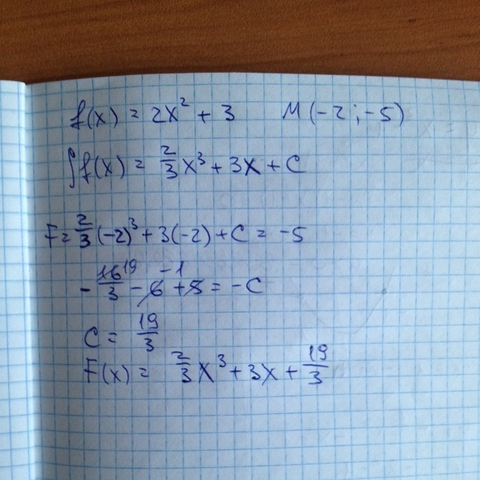 f(x) = 2x² + 3 M(-2 ; -5)
∫f(x) = 2/3 x³ + 3x + C
F = 2/3 (-2)³ + 3(-2) + C = -5
-16/3 19 - 6 + 5 -1 = -C
C = 19/3
F(x) = 2/3 x³ + 3x + 19/3